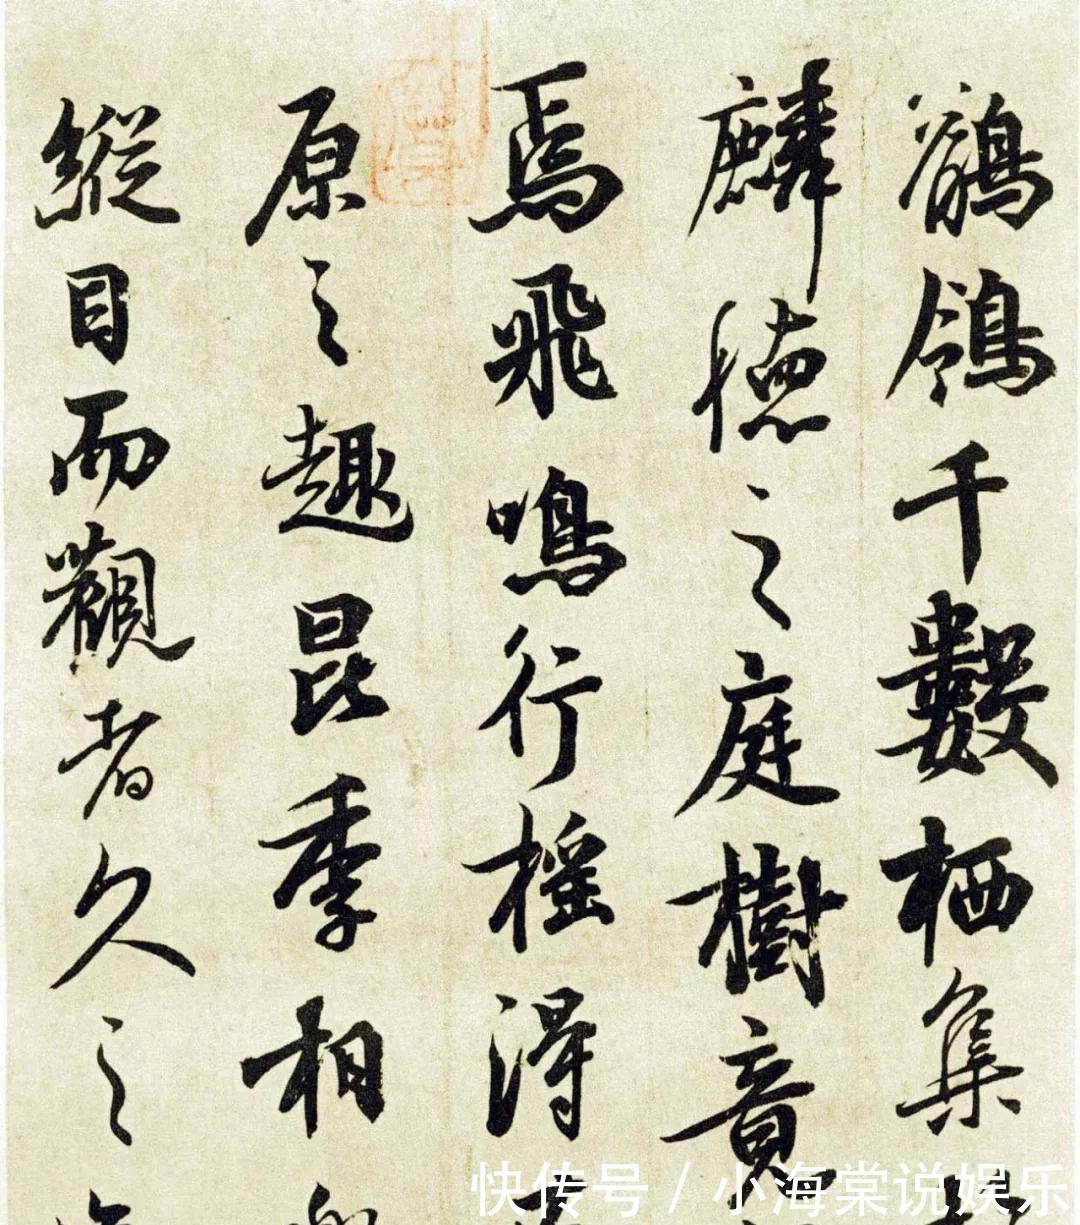 鶺鴒千數栖集
麟德之庭樹竟
焉飛鳴行摇得
原之趣昆季相
縱目而觀者久之
快传号 / 小海棠说娱乐